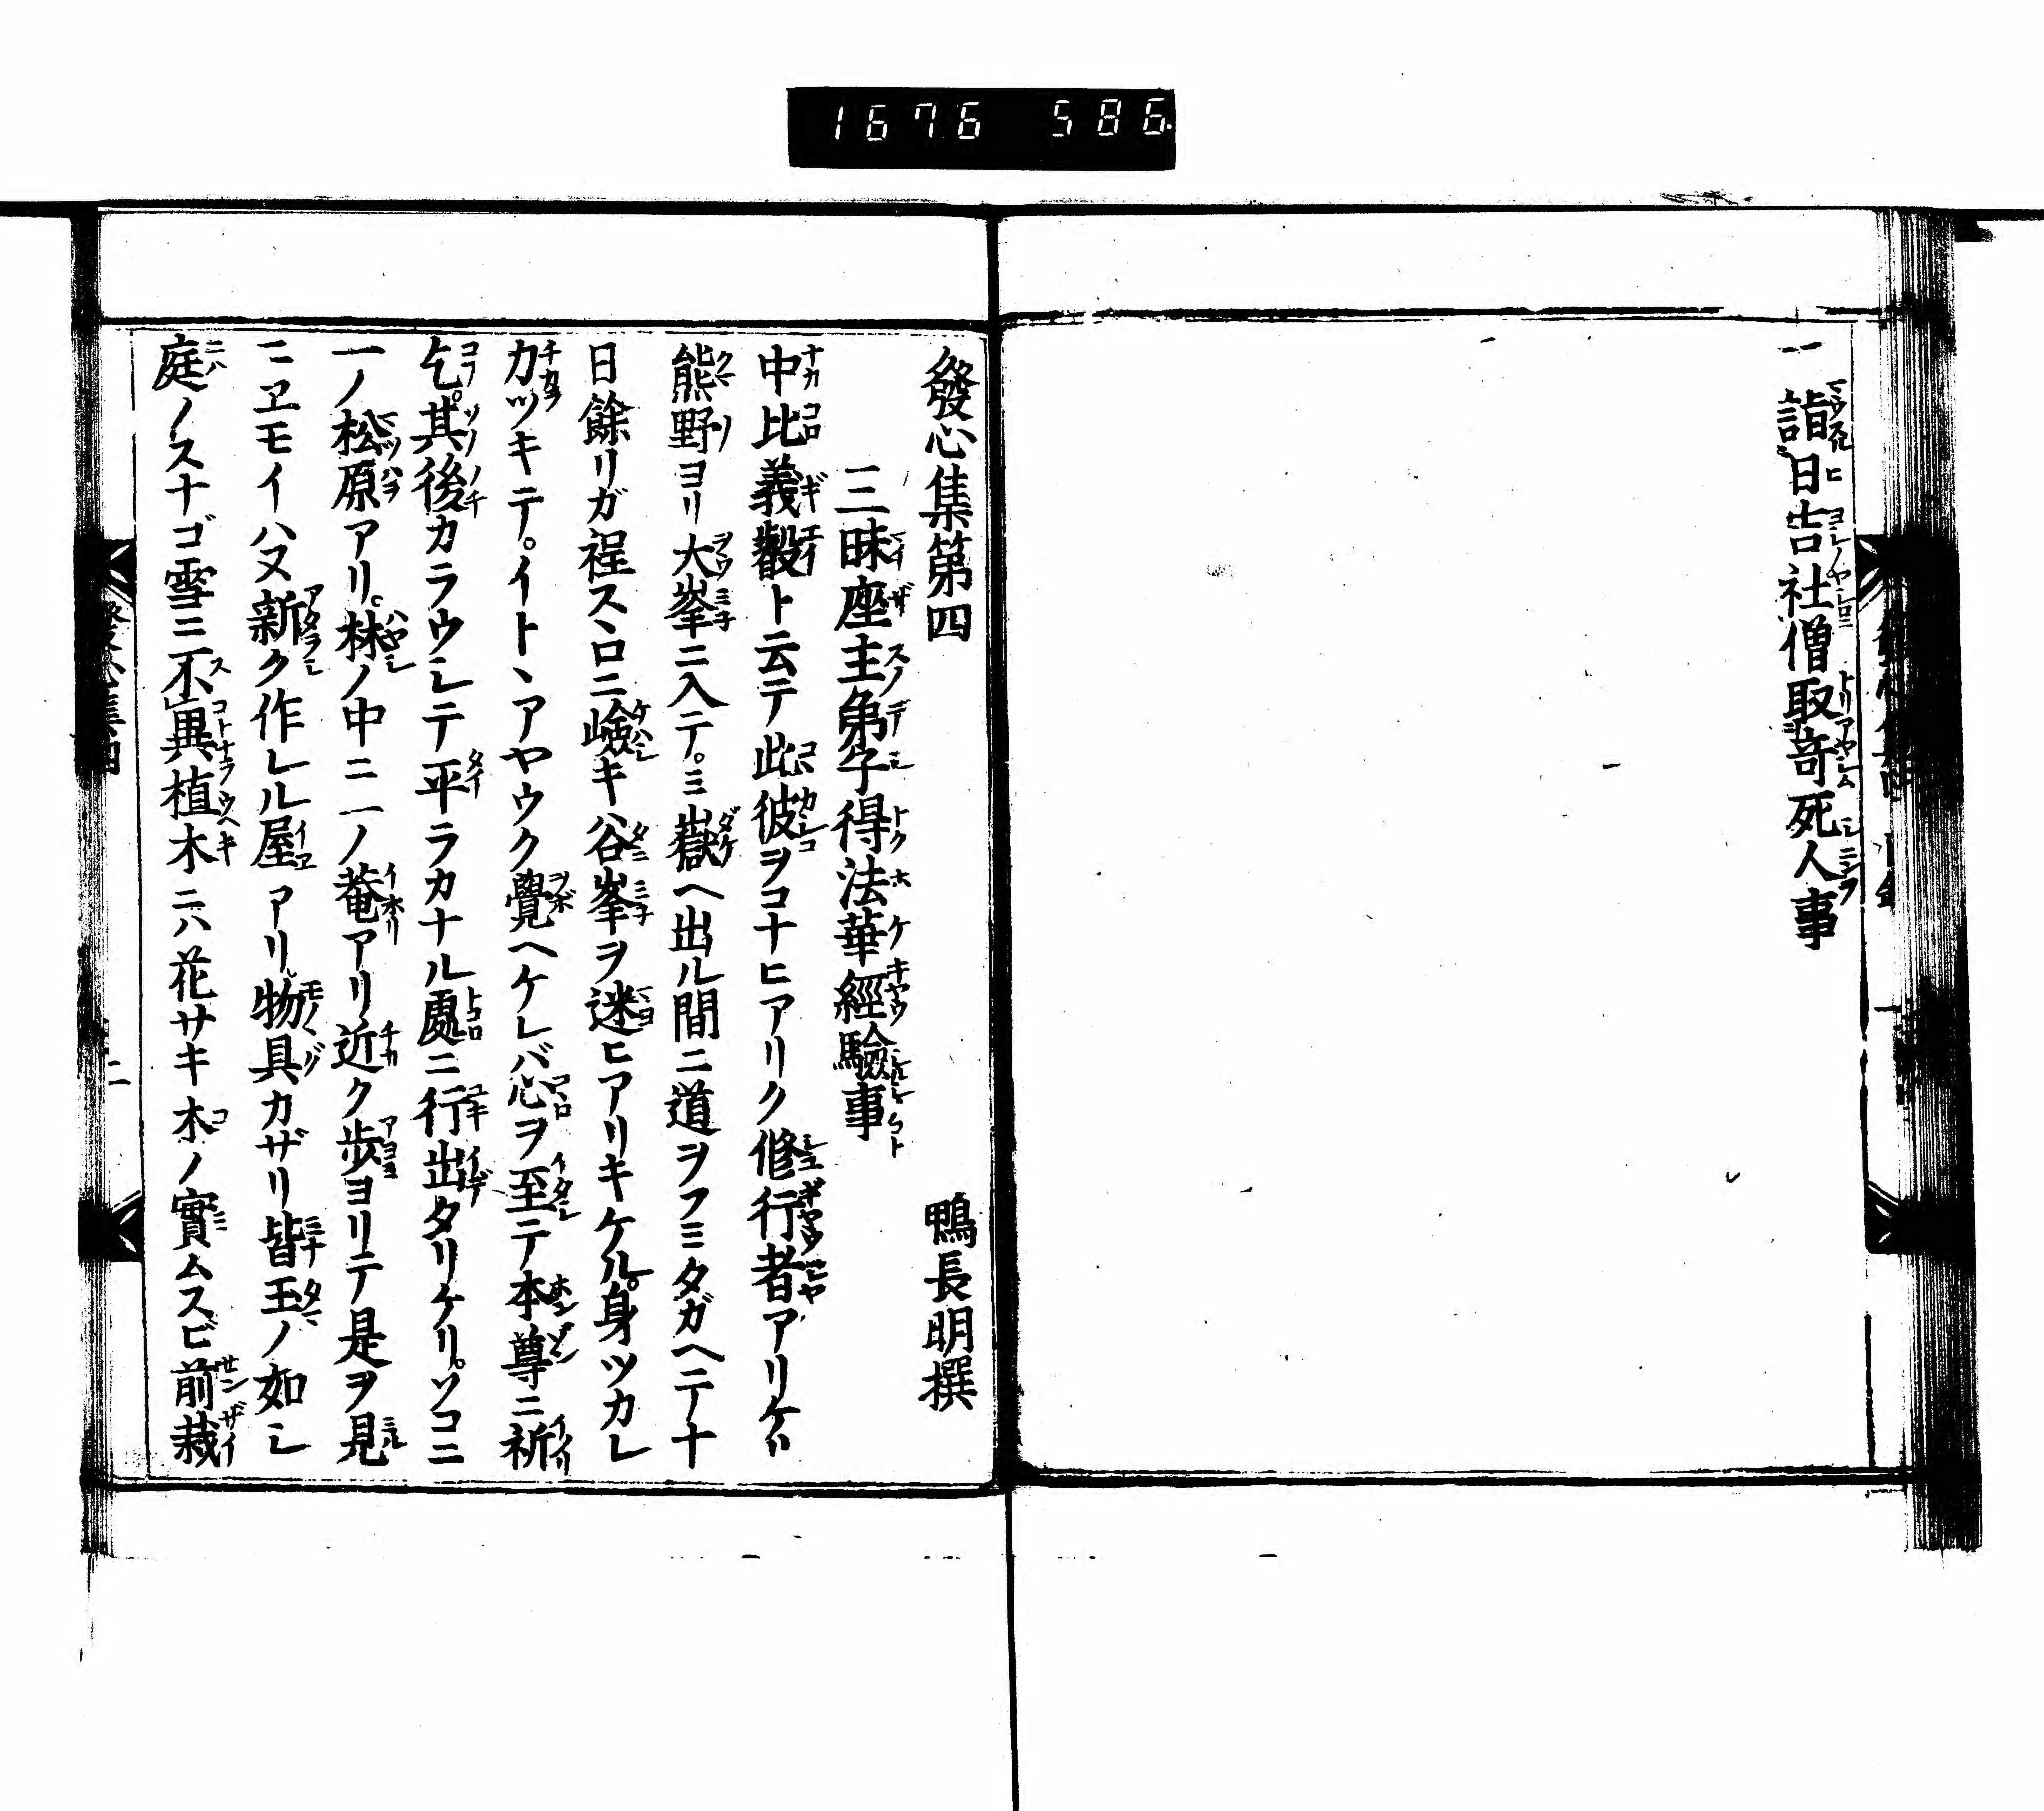 1676 586
一 詣日吉社僧取奇死人事
發心集第四 鴨長明撰
三昧座主弟子得法華經驗事
中比義叡ト云テ此彼ヲコナヒアリク修行者アリケリ
熊野ヨリ大峯ニ入テ。ミ嶽ヘ出ル間ニ道ヲフミタガヘテ十
日餘リガ程スヽロニ嶮キ谷峯ヲ迷ヒアリキケル。身ツカレ
力ツキテ。イトヽアヤウク覺ヘケレバ心ヲ至テ本尊ニ祈
乞。其後カラウシテ平ラカナル處ニ行出タリケリ。ソコニ
一ノ松原アリ。林ノ中ニ一ノ菴アリ近ク歩ヨリテ是ヲ見
ニヱモイハヌ新ク作レル屋アリ。物具カザリ皆玉ノ如シ
庭ノスナゴ雪ニ不異植木ニハ花サキ木ノ實ムスビ前栽
發心集四 二